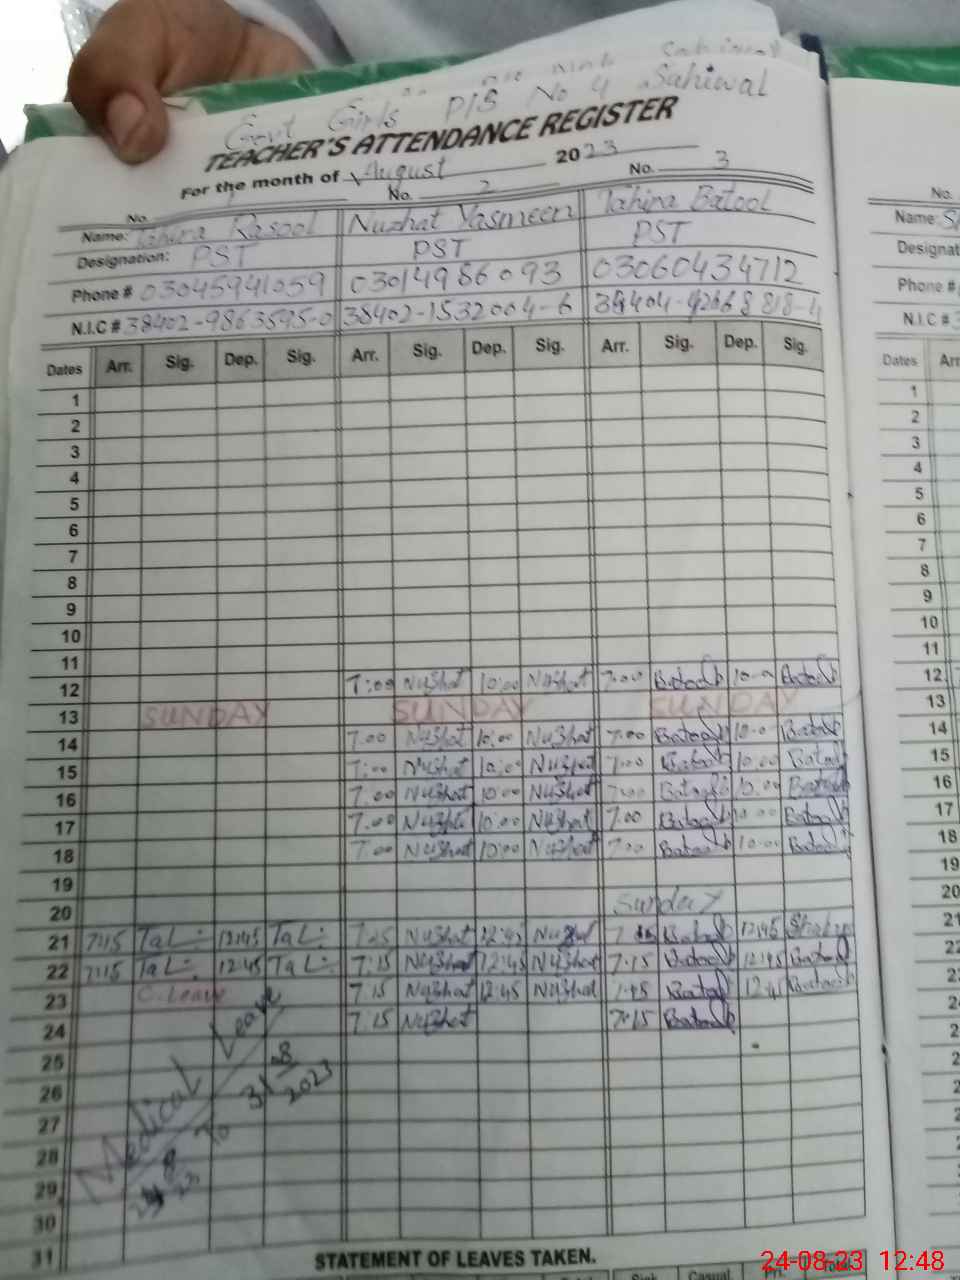 Sahiwal
Govt Girls P/S No 4 Sahiwal
TEACHER'S ATTENDANCE REGISTER
For the month of August 2023
No. 1 No. 2 No. 3
Name: Tahira Rasool Nuzhat Yasmeen Tahira Batool
Designation: PST PST PST
Phone # 03045941059 03014986093 03060434712
N.I.C # 38402-9863595-0 38402-1532004-6
Dates Arr. Sig. Dep. Sig. Arr. Sig. Dep. Sig. Arr. Sig. Dep. Sig.
1
2
3
4
5
6
7
8
9
10
11
12 7:00 Nuzhat 10:00 Nuzhat 7:00 Batool 10:00 Batool
13 SUNDAY SUNDAY SUNDAY
14 7:00 Nuzhat 10:00 Nuzhat 7:00 Batool 10:00 Batool
15 7:00 Nuzhat 10:00 Nuzhat 7:00 Batool 10:00 Batool
16 7:00 Nuzhat 10:00 Nuzhat 7:00 Batool 10:00 Batool
17 7:00 Nuzhat 10:00 Nuzhat 7:00 Batool 10:00 Batool
18 7:00 Nuzhat 10:00 Nuzhat 7:00 Batool 10:00 Batool
19
20 Sunday
21 7:15 12:45 Nuzhat 12:45 Nuzhat Batool 12:45
22 7:15 12:45 7:15 Nuzhat 12:45 Nuzhat 7:15 Batool 12:45 Batool
23 C. Leave 7:15 Nuzhat 12:45 Nuzhat Batool 12:45 Batool
24 7:15 Nuzhat 7:15 Batool
25
26
27
28
29
30
31
Medical Leave
To 31-8-2023
STATEMENT OF LEAVES TAKEN.
Sick Casual Total
No.
Name:
Designat
Phone #
N.I.C #
Dates Arr
1
2
3
4
5
6
7
8
9
10
11
12
13
14
15
16
17
18
19
20
21
22
23
24-08-23 12:48